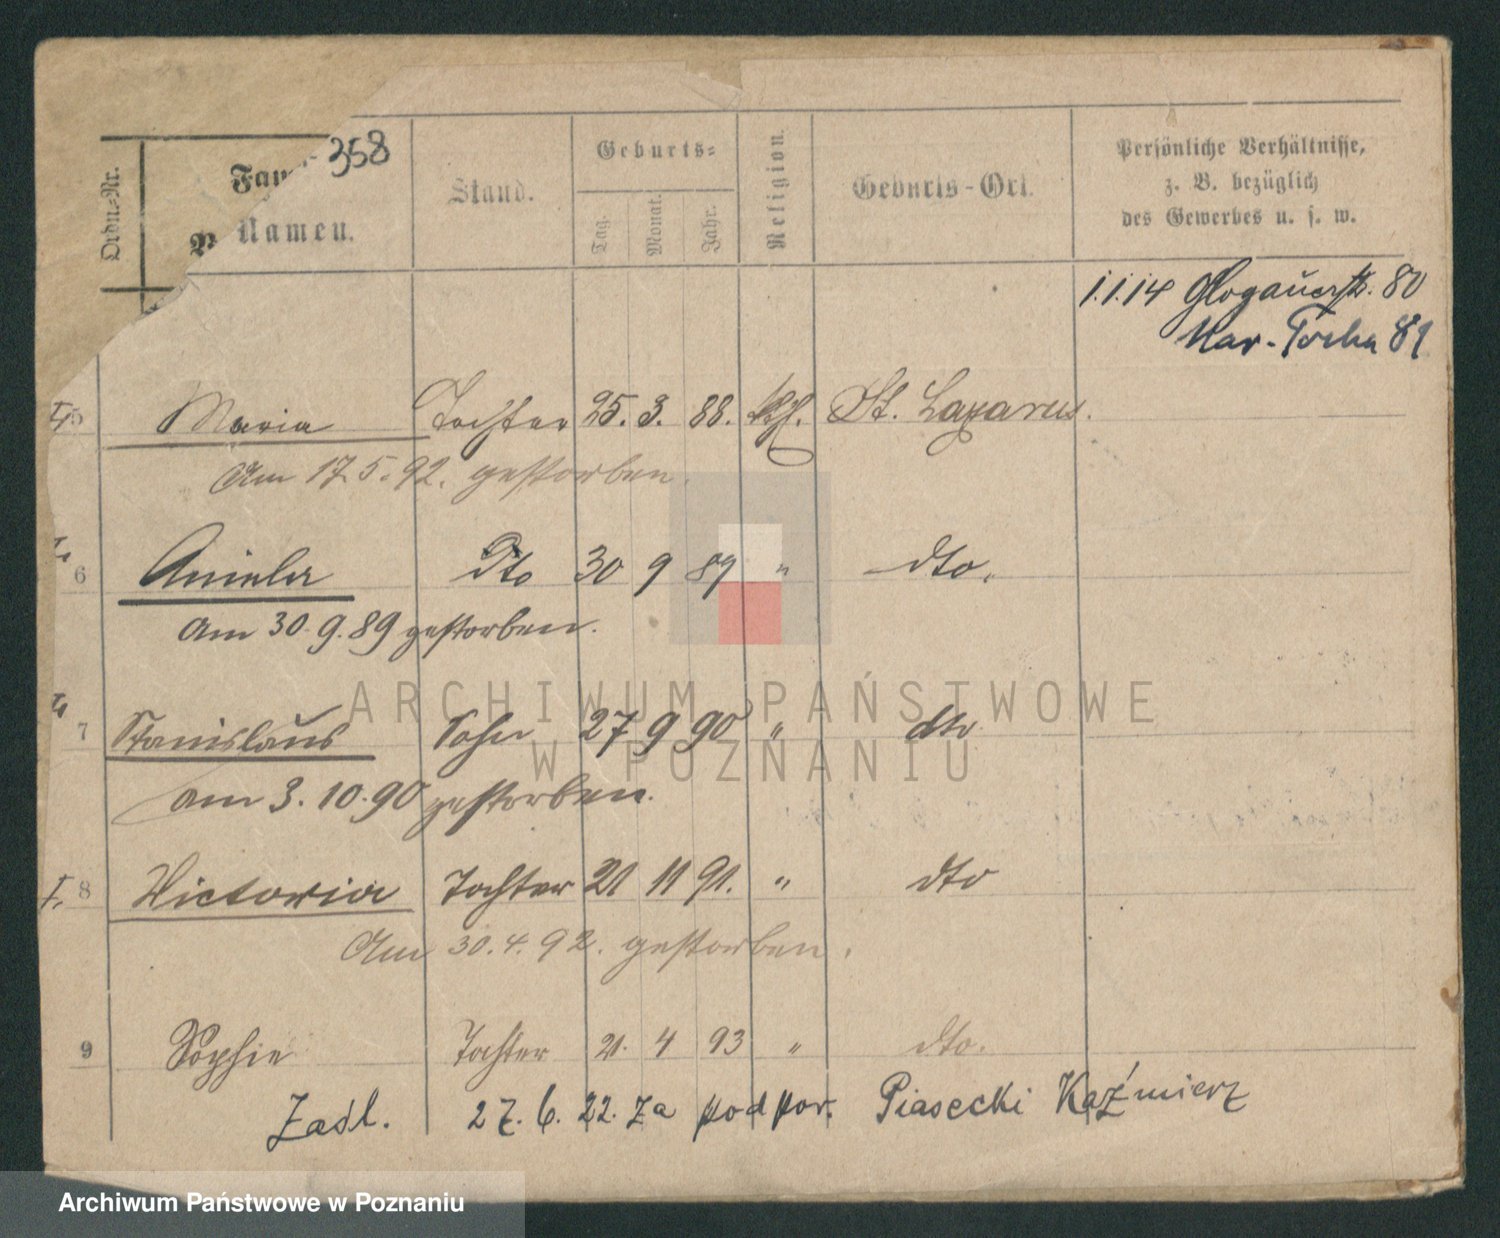 358
Ordn.-Nr.
Fam
Namen.
Stand.
Geburts-
Tag.
Monat.
Jahr.
Religion.
Geburts-Ort.
Persönliche Verhältnisse,
z. B. bezüglich
des Gewerbes u. s. w.
1.1.14 Glogauerstr. 80
Mar. Focha 81
5 Maria Tochter 25. 3. 88. kth. St. Lazarus.
Am 17.5.92. gestorben.
6 Aniela dto 30 9 89 " dto.
Am 30.9.89 gestorben.
7 Stanislaus Sohn 27 9 90 " dto
Am 3.10.90 gestorben.
8 Victoria Tochter 21 11 91. " dto
Am 30.4.92. gestorben.
9 Sophie Tochter 21. 4 93 " dto.
Zaśl. 27.6.22. za podpor. Piasecki Kaźmierz
ARCHIWUM PAŃSTWOWE
W POZNANIU
Archiwum Państwowe w Poznaniu